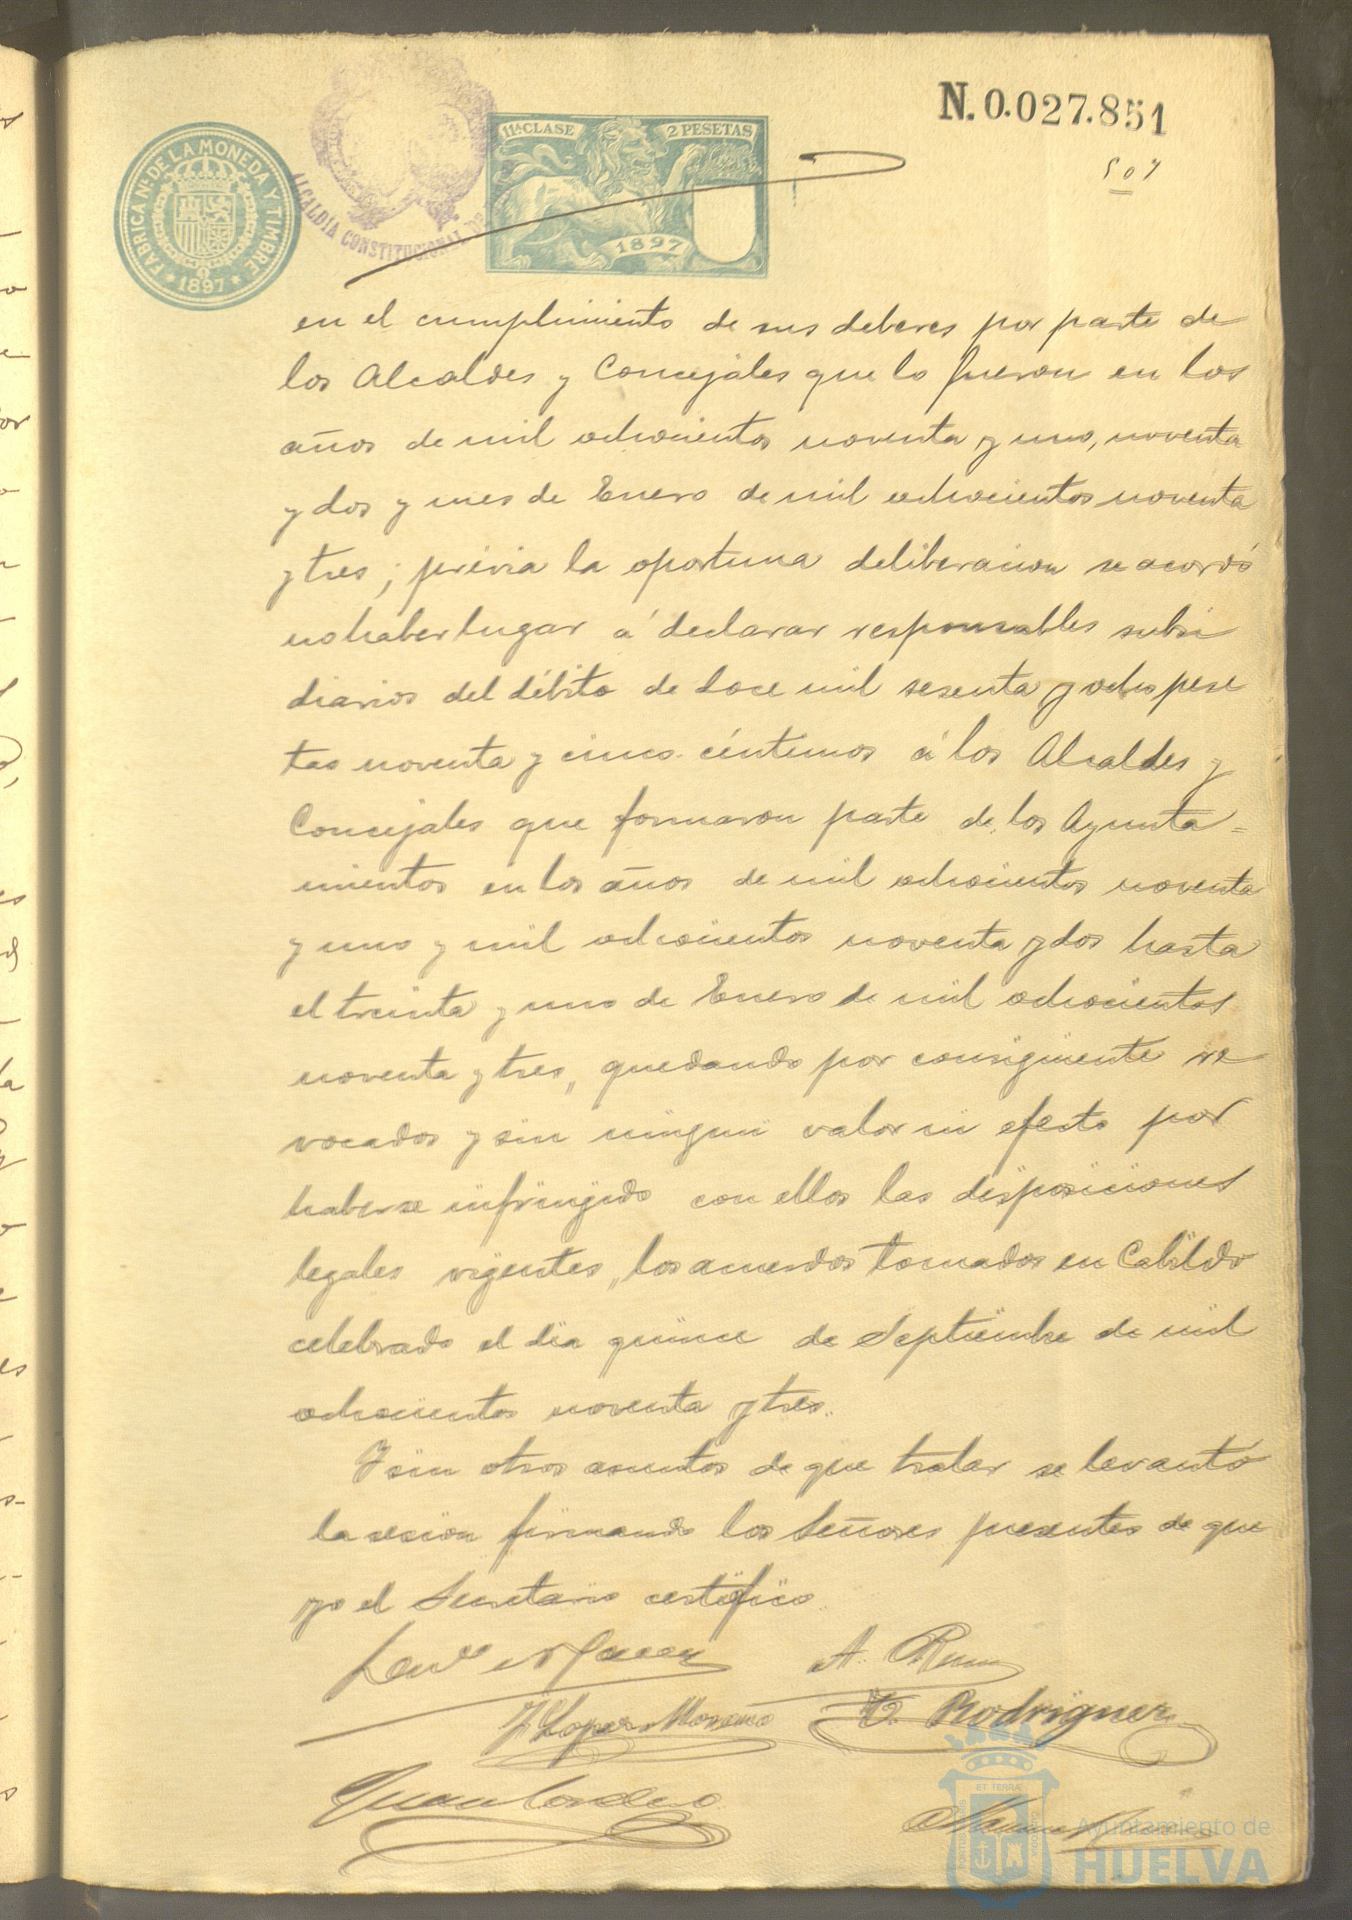 N. 0.027.851
507
11ª CLASE
2 PESETAS
1897
FABRICA Nal DE LA MONEDA Y TIMBRE
* 1897 *
ALCALDIA CONSTITUCIONAL DE
en el cumplimiento de sus deberes por parte de
los Alcaldes y Concejales que lo fueron en los
años de mil ochocientos noventa y uno, noventa
y dos y mes de Enero de mil ochocientos noventa
y tres; prévia la oportuna deliberacion se acordó
no haber lugar á declarar responsables subsi
diarios del débito de doce mil sesenta y ocho pese
tas noventa y cinco céntimos á los Alcaldes y
Concejales que formaron parte de los Ayunta=
mientos en los años de mil ochocientos noventa
y uno y mil ochocientos noventa y dos hasta
el treinta y uno de Enero de mil ochocientos
noventa y tres, quedando por consiguiente re
vocados y sin ningun valor ni efecto por
haberse infringido con ellos las disposiciones
legales vigentes, los acuerdos tomados en Cabildo
celebrado el dia quince de Septiembre de mil
ochocientos noventa y tres.
Y sin otros asuntos de que tratar se levantó
la sesion firmando los Señores presentes de que
yo el Secretario certifico.
A.
J. Lopez Moreno
Rodriguez
Juan Cordero
ET TERRA
Ayuntamiento de
HUELVA